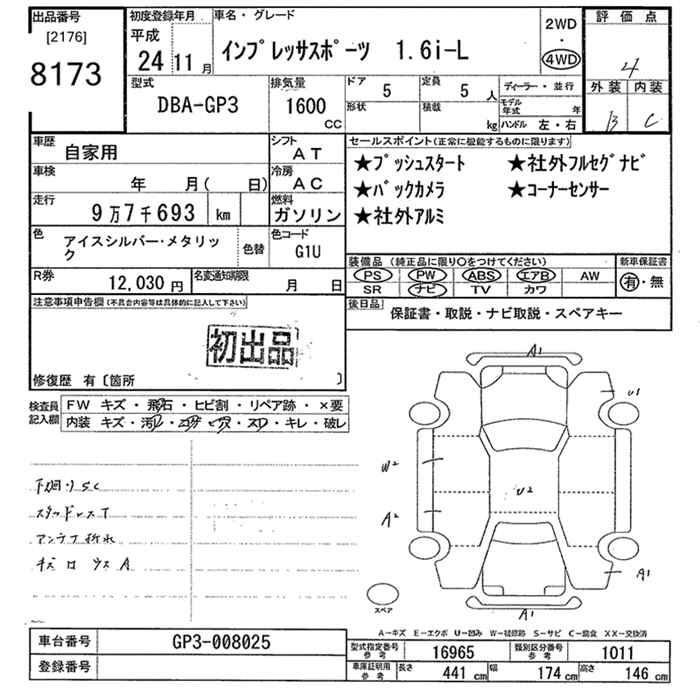 出品番号
[2176]
8173
初度登録年月
平成
24 11 月
車名・グレード
インプレッサスポーツ 1.6i-L
2WD
・
4WD
評価点
4
外装 内装
B C
型式
DBA-GP3
排気量
1600
CC
ドア 5
定員 5 人
形状
積載 kg
ディーラー・並行
モデル年式 年
ハンドル 左・右
車歴
自家用
シフト
AT
車検
年 月( 日)
冷房
AC
走行
9万7千693 km
燃料
ガソリン
色
アイスシルバー・メタリック
色替
色コード
G1U
R券
12,030 円
名変通知期限
月 日
セールスポイント(正常に機能するものに限ります)
★プッシュスタート ★社外フルセグナビ
★バックカメラ ★コーナーセンサー
★社外アルミ
装備品(純正品に限り○をつけてください)
新車保証書
PS PW ABS エアB AW
有・無
SR ナビ TV カワ
後日品
保証書・取説・ナビ取説・スペアキー
注意事項申告欄(不具合内容等は具体的に記入して下さい)
初出品
修復歴 有〔箇所 〕
検査員記入欄
FW キズ・飛石・ヒビ割・リペア跡・×要
内装 キズ・汚レ・コゲ・穴・スレ・キレ・破レ
下回りSC
スタッドレスT
アンテナ折れ
A1
U1
W2
U2
A2
A1
A1
スペア
A-キズ E-エクボ U-凹み W-補修跡 S-サビ C-腐食 XX-交換済
車台番号
GP3-008025
登録番号
型式指定番号 参考
16965
類別区分番号 参考
1011
車庫証明用 参考
長さ 441 cm
幅 174 cm
高さ 146 cm